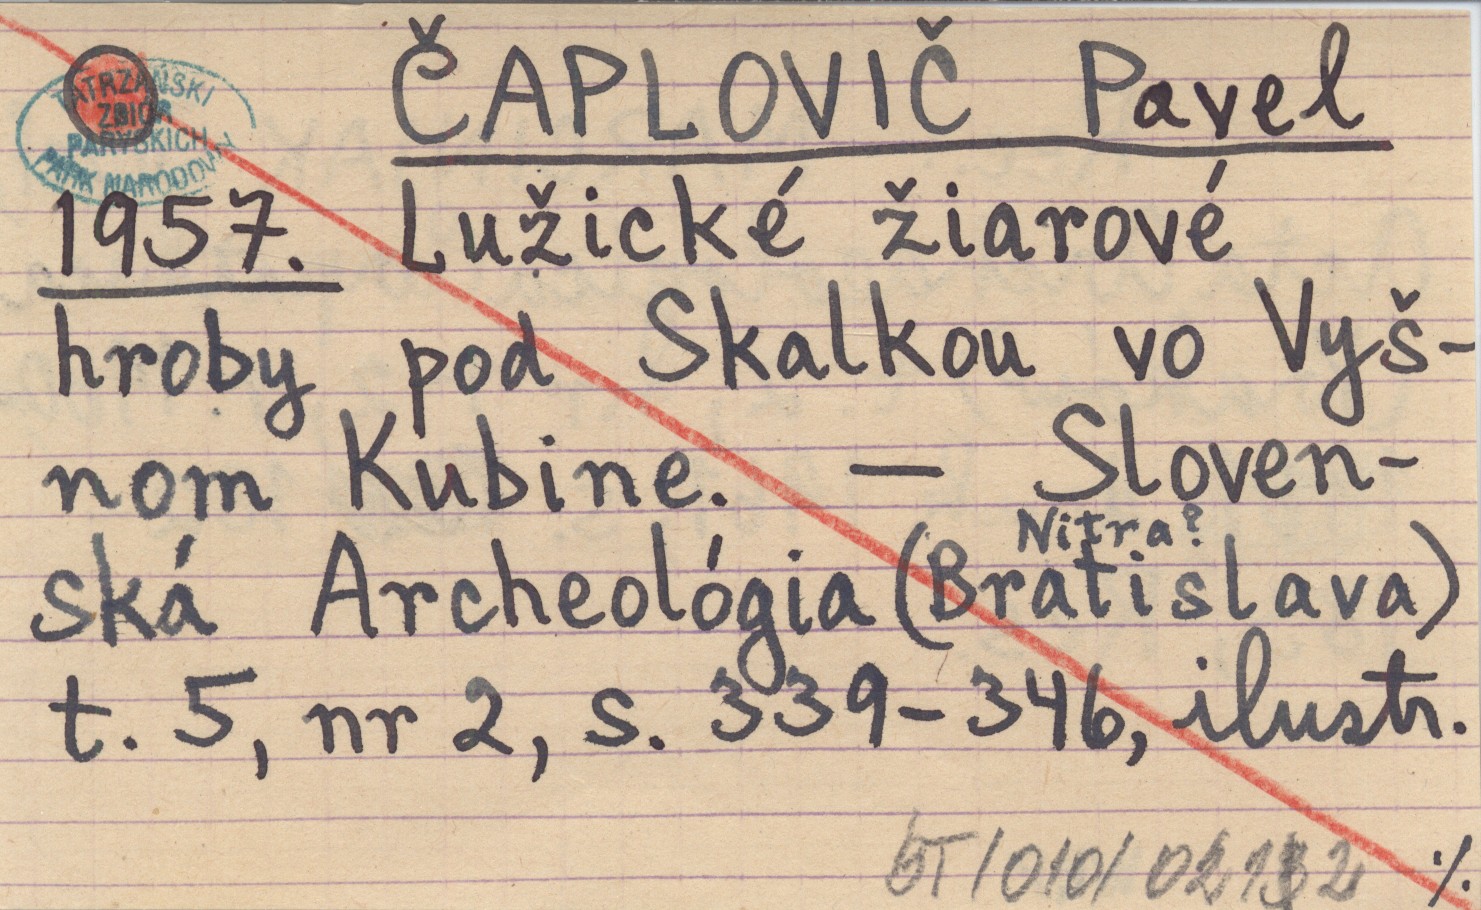 TATRZAŃSKI
ZBIOR
PARYSKICH
PARK NARODOWY
ČAPLOVIČ Pavel
1957. Lužické žiarové
hroby pod Skalkou vo Vyš-
nom Kubíne. — Sloven-
Nitra?
ská Archeológia (Bratislava)
t. 5, nr 2, s. 339-346, ilustr.
BT/010/
·/.